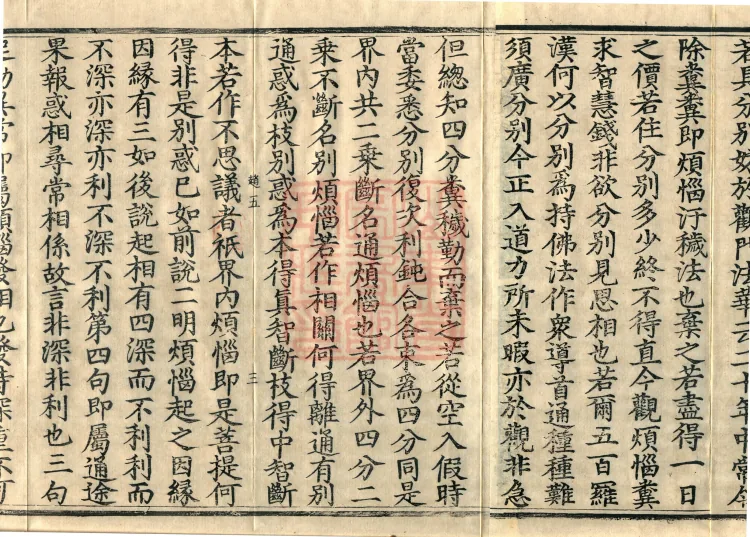 若具分別妨於觀門法華云二十年中常令
除糞糞即煩惱汙穢法也棄之若盡得一日
之價若住分別多少終不得直今觀煩惱糞
求智慧錢非欲分別見思相也若爾五百羅
漢何以分別為持佛法作衆導首通種種難
須廣分別今正入道力所未暇亦於觀非急
但總知四分糞穢勤而棄之若從空入假時
當委悉分別復次利鈍合各束為四分同是
界內共二乗斷名通煩惱也若界外四分二
乗不斷名別煩惱若作相關何得離通有別
通惑為枝別惑為本得真智斷枝得中智斷
趙五
三
本若作不思議者秖界內煩惱即是菩提何
得非是別惑已如前說二明煩惱起之因緣
因緣有三如後說起相有四深而不利利而
不深亦深亦利不深不利第四句即屬通途
果報惑相尋常相係故言非深非利也三句